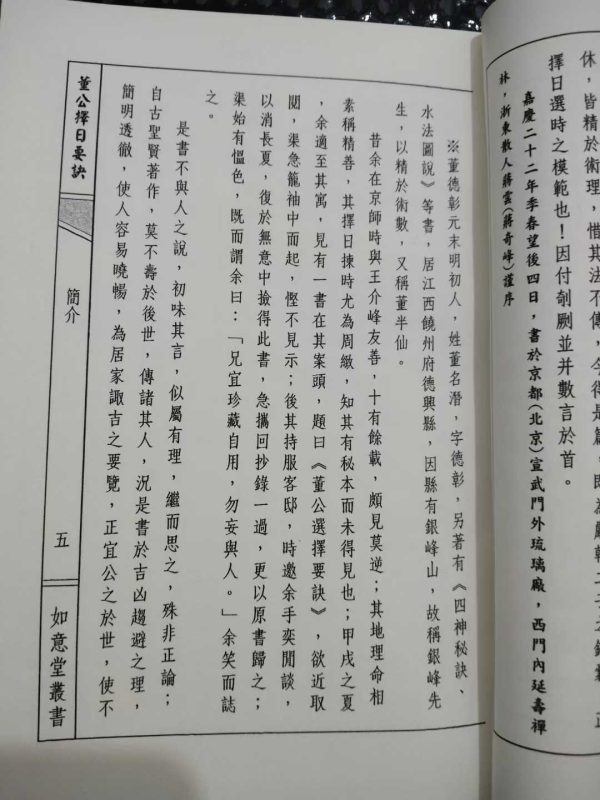 休，皆精於術理，惜其法不傳，今得是篇，
擇日選時之模範也！因付剞劂並并數言於首。
嘉慶二十二年季春望後四日，書於京都（北京）宣武門外琉璃廠，西門內延壽禪
林，浙東散人蔣雲（蔣奇峰）謹序
※董德彰元末明初人，姓董名潛，字德彰，另著有《四神秘訣、
水法圖說》等書，居江西饒州府德興縣，因縣有銀峰山，故稱銀峰先
生，以精於術數，又稱董半仙。
昔余在京師時與王介峰友善，十有餘載，頗見莫逆；其地理命相
素稱精善，其擇日揀時尤為周緻，知其有秘本而未得見也；甲戌之夏
，余適至其寓，見有一書在其案頭，題曰《董公選擇要訣》，欲近取
閱，渠急籠袖中而起，慳不見示；後其持服客邸，時邀余手奕閒談，
以消長夏，復於無意中撿得此書，急攜回抄錄一過，更以原書歸之；
渠始有慍色，既而謂余曰：「兄宜珍藏自用，勿妄與人。」余笑而誌
之。
是書不與人之說，初味其言，似屬有理，繼而思之，殊非正論；
自古聖賢著作，莫不壽於後世，傳諸其人，況是書於吉凶趨避之理，
簡明透徹，使人容易曉暢，為居家諏吉之要覽，正宜公之於世，使不
董公擇日要訣
簡介
五
如意堂叢書